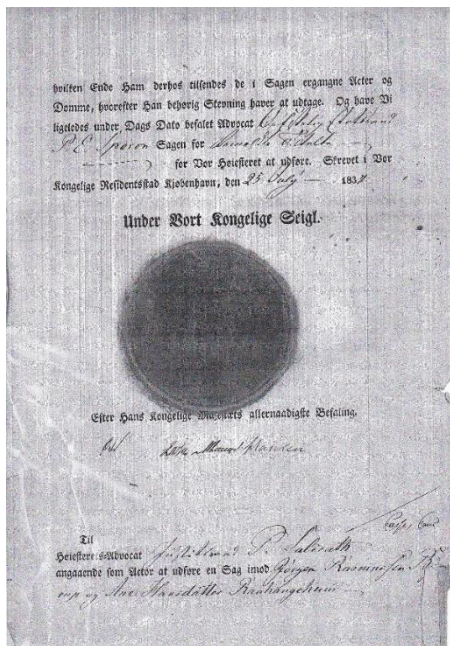 hvilken Ende Ham derhos tilsendes de i Sagen ergangne Acter og
Domme, hvorefter Han behørig Stevning haver at udtage. Og have Vi
ligeledes under Dags Dato befalet Advocat
P. E. Spøron Sagen for
for Vor Høiesteret at udføre. Skrevet i Vor
Kongelige Residentsstad Kjøbenhavn, den 25 July 183
Under Vort Kongelige Seigl.
Efter Hans Kongelige Majestæts allernaadigste Befaling.
Hansen
Til
Høiesterets-Advocat Justitsraad P. Salicath
angaaende som Actor at udføre en Sag imod Jørgen Rasmussen
og Ane Hansdatter